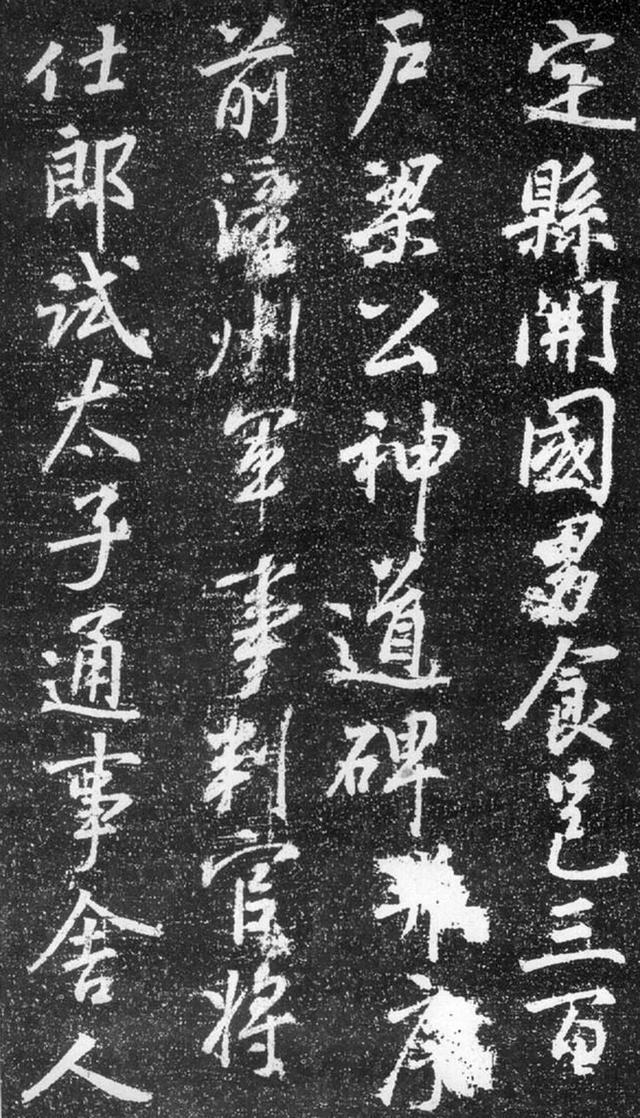 定縣開國男食邑三百
户梁公神道碑并序
前澶州軍事判官將
仕郎試太子通事舍人